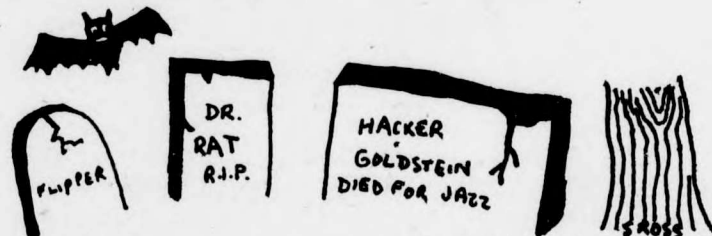 FLIPPER
DR.
RAT
R.I.P.
HACKER
GOLDSTEIN
DIED FOR JAZZ
S ROSS